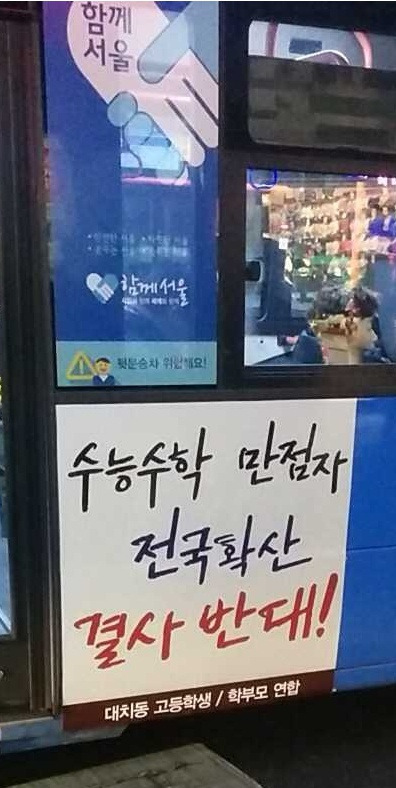 함께
서울
함께서울
뒷문승차 위험해요!
수능수학 만점자
전국확산
결사 반대!
대치동 고등학생 / 학부모 연합